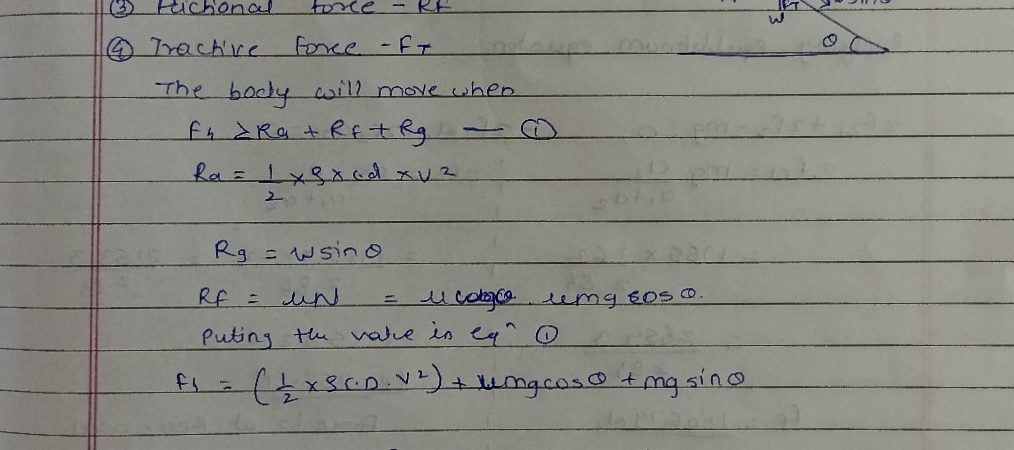 ③ Frictional force - RF
W
④ Tractive Force - FT
θ
The body will move when
Ft ≥ Ra + Rf + Rg — ①
Ra = 1/2 × ρ × cd × V²
Rg = W sin θ
RF = μN = μmg cos θ.
Puting the value in eqⁿ ①
Ft = (1/2 × ρ C.D. V²) + μmg cos θ + mg sin θ